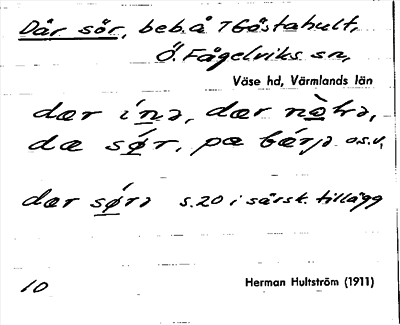 Dår sör, beb. å Gåstahult,
Ö. Fågelviks sn,
Väse hd, Värmlands län
dær ínə, dær nòlrə,
dæ sǿr, pæ bǽrjə o.s.v.
dær sǿrə s. 20 i särsk. tillägg
10
Herman Hultström (1911)